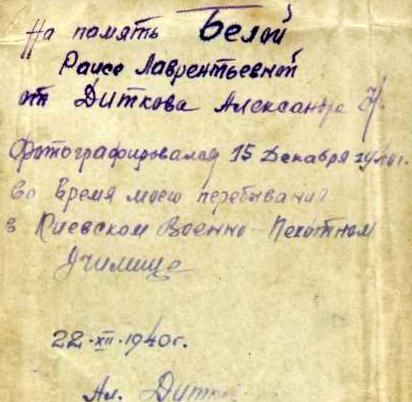 На память Белой
Раисе Лаврентьевной
от Диткова Александра И.
Фотографировался 15 Декабря 1940г.
во Время моего перебывания
в Киевском Военно-Пехотном
Училище
22·XII·1940г.
Ал. Дитков